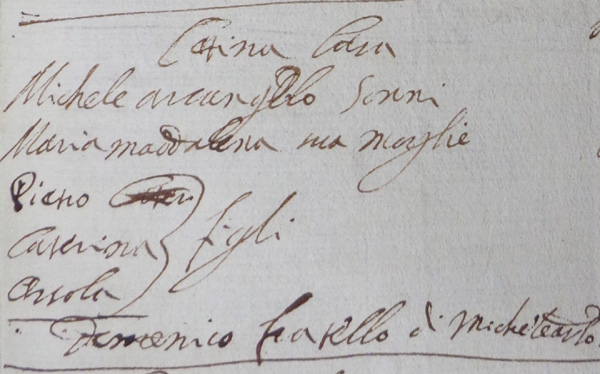 Casa
Michele arcangelo Sonni
Maria maddalena sua moglie
Pietro
Caterina figli
Orsola
Domenico fratello di Michelearc.lo